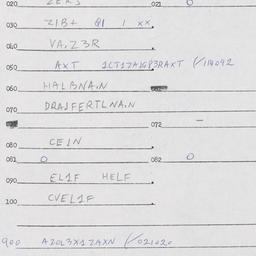 020 ZERS 021 0
030 ZIB+ QI 1 XX.
040 VA.Z3R
050 AXT 1CT17A1GP3RAXT (/114092
060 HALBNA.N
070 DRA1FERTLNA.N
072 -
080 CE1N
081 0 082 0
090 EL1F HELF
100 CVEL1F
900 AZOL3X1ZAXN (/021020